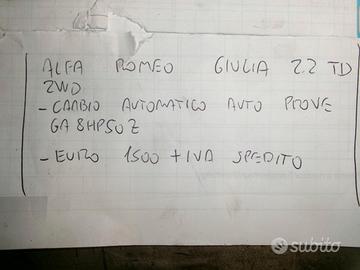 ALFA ROMEO GIULIA 2.2 TD
2WD
- CAMBIO AUTOMATICO AUTO PROVE
GA 8HP50Z
- EURO 1500 + IVA SPEDITO
subito